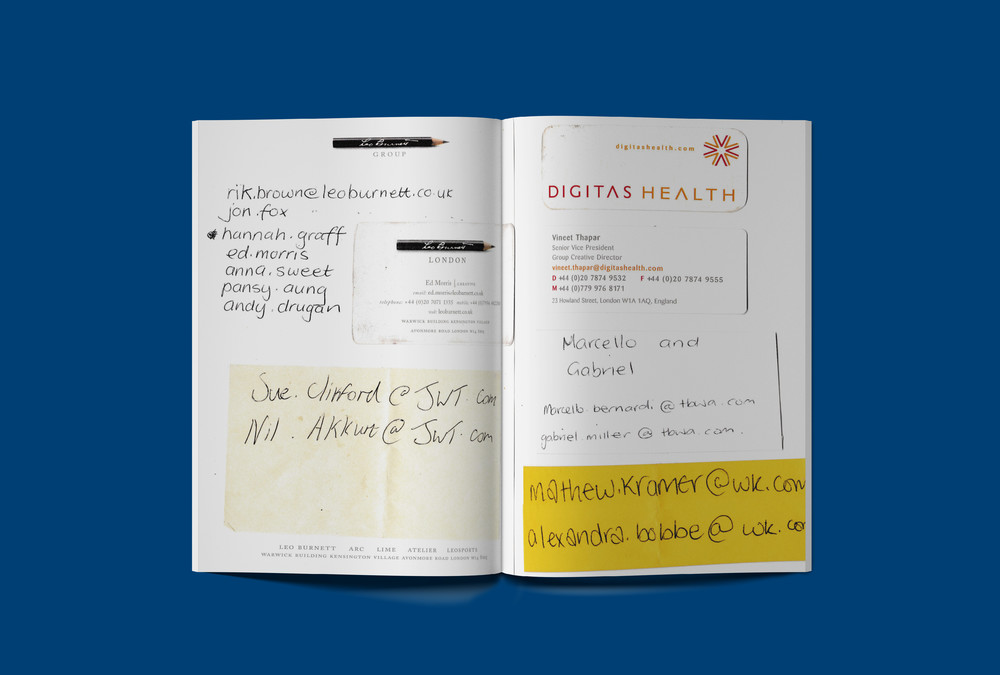 Leo Burnett
GROUP
rik.brown@leoburnett.co.uk
jon.fox
hannah.graff
ed.morris
anna.sweet
pansy.aung
andy.drugan
Leo Burnett
LONDON
Ed Morris | CREATIVE
email: ed.morris@leoburnett.co.uk
telephone: +44 (0)20 7071 mobile: +44
visit leoburnett.co.uk
WARWICK BUILDING KENSINGTON VILLAGE
AVONMORE ROAD LONDON W14
Sue.Clifford@JWT.com
Nil.Akkurt@JWT.com
LEO BURNETT ARC LIME ATELIER LEOSPORTS
WARWICK BUILDING KENSINGTON VILLAGE AVONMORE ROAD LONDON W14
digitashealth.com
DIGITAS HEALTH
Vineet Thapar
Senior Vice President
Group Creative Director
vineet.thapar@digitashealth.com
D +44 (0)20 7874 9532 F +44 (0)20 7874 9555
M +44 (0)779 976 8171
23 Howland Street, London W1A 1AQ, England
Marcello and
Gabriel
Marcello.bernardi.@tbwa.com
gabriel.miller@tbwa.com.
mathew.kramer@wk.com
alexandra.bobbe@wk.co